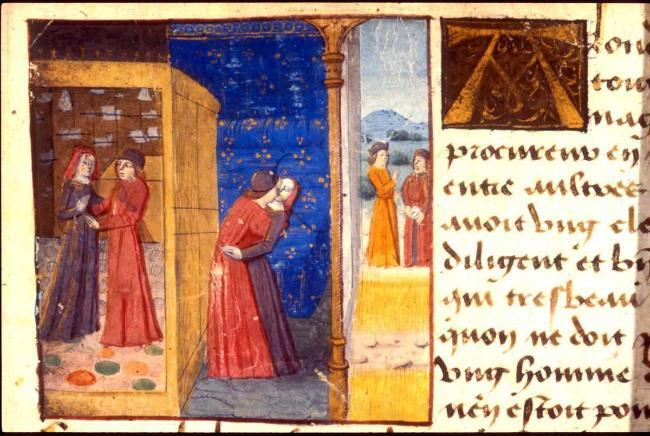 ton
tout
mag
procureur en
entre aultres
avoit vng cle
diligent et bn
qui tresbeau
quon ne doit p
vng homme d
nen estoit pou